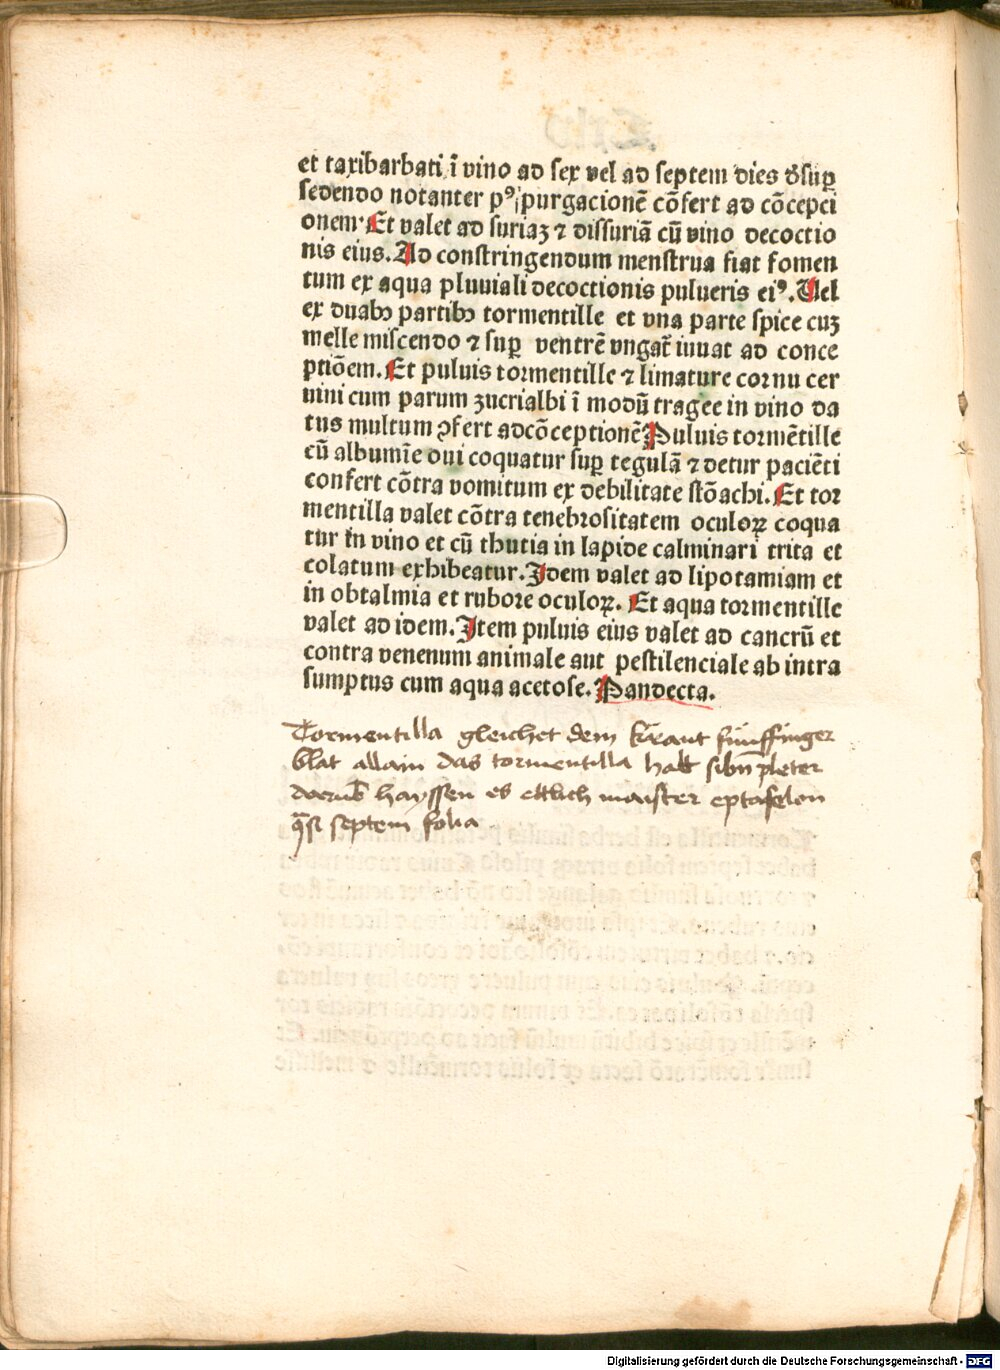 et taxibarbati ī vino ad sex vel ad septem dies d̄suꝑ
sedendo notanter pꝰ purgacionē cōfert ad cōcepci
onem. Et valet ad suriaꝫ ⁊ dissuriā cū vino decoctio
nis eius. Ad constringendum menstrua fiat fomen
tum ex aqua pluuiali decoctionis pulueris eiꝰ. Uel
ex duabꝫ partibꝫ tormentille et vna parte spice cuꝫ
melle miscendo ⁊ suꝑ ventrē vngat̄ iuuat ad conce
ptiōem. Et puluis tormentille ⁊ limature cornu cer
uini cum parum zucrialbi ī modū tragee in vino da
tus multum ꝯfert adcōceptionē Puluis tormētille
cū albumīe oui coquatur suꝑ tegulā ⁊ detur paciēti
confert cōtra vomitum ex debilitate stōachi. Et tor
mentilla valet cōtra tenebrositatem oculoꝝ coqua
tur in vino et cū thutia in lapide calminari trita et
colatum exhibeatur. Idem valet ad lipotamiam et
in obtalmia et rubore oculoꝝ. Et aqua tormentille
valet ad idem. Item puluis eius valet ad cancrū et
contra venenum animale aut pestilenciale ab intra
sumptus cum aqua acetose. Pandecta.
Tormentilla gleichet dem kraut fünffinger
blat allain das tormentilla halt sibn pleter
darūb hayssen es ettlich maister eptafelon
q̄si septem folia
Digitalisierung gefördert durch die Deutsche Forschungsgemeinschaft - DFG